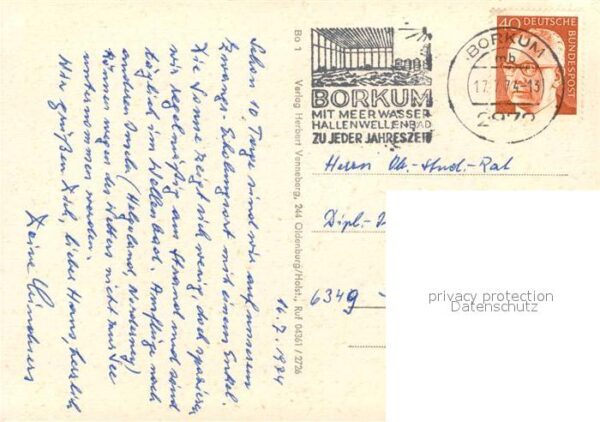 16.7.1974
Schon 10 Tage sind wir auf unserem
Erholungsort mit einem Enkel.
Die Sonne zeigt sich wenig, doch spazieren
wir regelmäßig am Strand und sind
täglich im Wellenbad. Ausflüge nach
anderen Inseln (Helgoland, Norderney)
können wegen des Wetters nicht zur See
unternommen werden.
Wir grüßen Dich, lieber Hans, herzlich
Deine
Bo 1 Verlag Herbert Venneberg, 244 Oldenburg/Holst., Ruf 04361 / 2726
BORKUM
MIT MEERWASSER
HALLENWELLENBAD
ZU JEDER JAHRESZEIT
40 DEUTSCHE
BUNDESPOST
BORKUM
mb
17.7.74-13
2972
Herrn Ob.-Stud.-Rat
Dipl.-
6349
privacy protection
Datenschutz